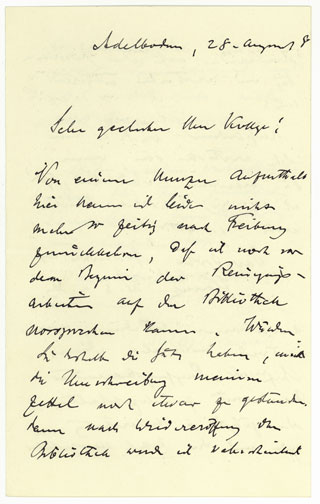 Adelboden, 28. August
Sehr geehrter Herr Kollege!
Von einem kurzen Aufenthalt
hier kann ich leider nicht
mehr so zeitig nach Freiburg
zurückkehren, daß ich noch vor
dem Beginn der Reinigungs-
arbeiten auf der Bibliothek
vorsprechen kann. Würden
Sie deshalb die Güte haben, mir
die Umschreibung meiner
Zettel noch etwas zu gestunden.
Dann nach Wiedereröffnung der
Bibliothek werde ich